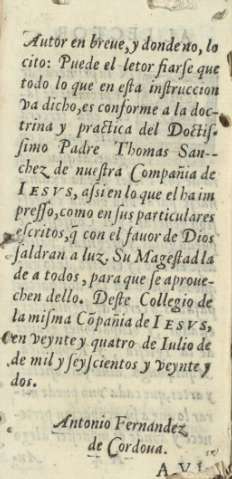 Autor en breue, y donde no, lo
cito: Puede el letor fiarse que
todo lo que en esta instruccion
va dicho, es conforme a la doc-
trina y practica del Doctis-
simo Padre Thomas San-
chez de nuestra Compañia de
IESVS, assi en lo que el ha im
presso, como en sus particulares
escritos, q̃ con el fauor de Dios
saldran a luz. Su Magestad la
de a todos, para que se aproue-
chen dello. Deste Collegio de
la misma Cõpañia de IESVS,
en veynte y quatro de Iulio de
de mil y seyscientos y veynte y
dos.
Antonio Fernandez
de Cordoua.